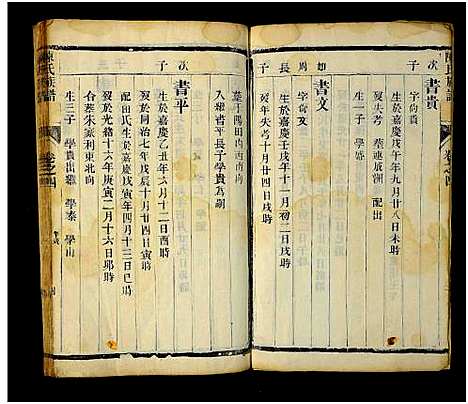 陳氏族譜
卷之四
次子
書貴
字尚貴
生於嘉慶戊午年九月廿八日未時
歿失考
配出
生一子 學
長子
書文
字尚文
生於嘉慶壬戌年十一月初二日戌時
歿年失考十月廿四日戌時
葬于陽田內西南向
入雅書平長子學貴為嗣
次子
書平
生於嘉慶乙丑年六月十二日酉時
歿於同治七年戊辰十月廿四日寅時
配田氏生於嘉慶戊寅年四月十三日巳時
歿於光緒十六年庚寅二月十六日卯時
合葬朱家利東北向
生三子 學貴出繼 學泰 學山
陳氏族譜
卷之四